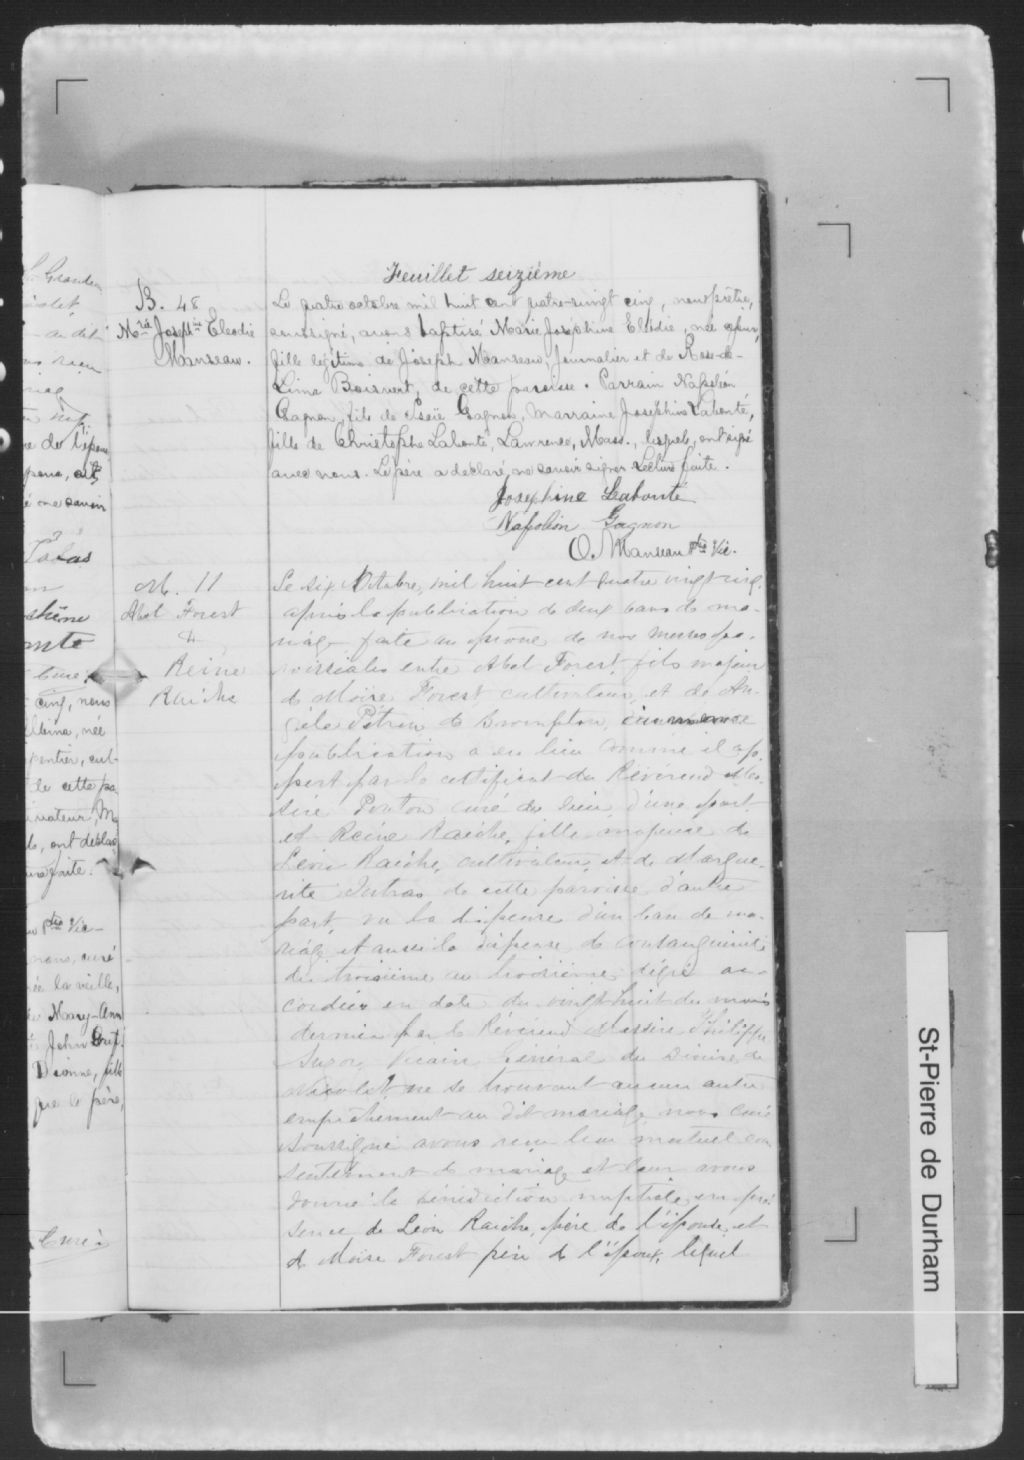 Feuillet seizième
B. 48
Mrie Josephine Eleodie
Manseau.
Le quatre octobre mil huit cent quatre-vingt cinq, nous prêtre,
soussigné, avons baptisé Marie Joséphine Elledie, née ce jour,
fille légitime de Joseph Manseau, Journalier et de Rose-de-
Lima Boisvert, de cette paroisse. Parrain Napoléon
Gagnon, fils de Esaïe Gagnon, Marraine Josephine Labonté,
fille de Christophe Labonté, Lawrence, Mass., lesquels, ont signé
avec nous. Le père a declaré, ne savoir signer. Lecture faite.
Josephine Labonté
Napoléon Gagnon
O. Manseau Ptre Vic.
M. 11
Abel Forest
&
Reine
Raiche
Le six Octobre, mil huit cent quatre vingt cinq,
après la publication de deux bans de ma-
riage faite au prône de nos messes pa-
roissiales entre Abel Forest fils majeur
de Moïse Forest, cultivateur, et de An-
gèle Pétrin de Brompton,
publication a eu lieu comme il ap-
pert par le certificat du Révérend Mes-
sire Ponton curé du lieu d'une part
et Reine Raiche, fille majeure de
Léon Raiche, cultivateur, et de Margue-
rite Jutras de cette paroisse d'autre
part, vu la dispense d'un ban de ma-
riage et aussi la dispense de consanguinité
du troisième au troisième degré ac-
cordées en date du vingt-huit du mois
dernier par le Révérend Messire Philippe
Suzor, Vicaire Général du Diocèse de
Nicolet ne se trouvant aucun autre
empêchement au dit mariage nous curé
soussigné avons reçu leur mutuel con
sentement de mariage et leur avons
donné la bénédiction nuptiale en pré-
sence de Léon Raiche, père de l'épouse, et
de Moïse Forest père de l'époux, lequel
St-Pierre de Durham